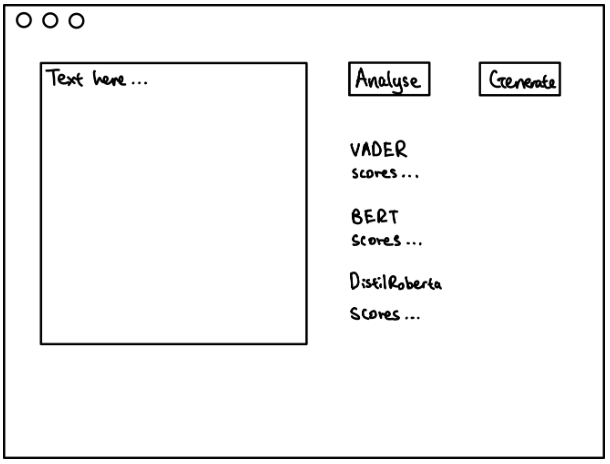 Text here ...
Analyse
Generate
VADER
scores ...
BERT
scores ...
DistilRoberta
Scores ...